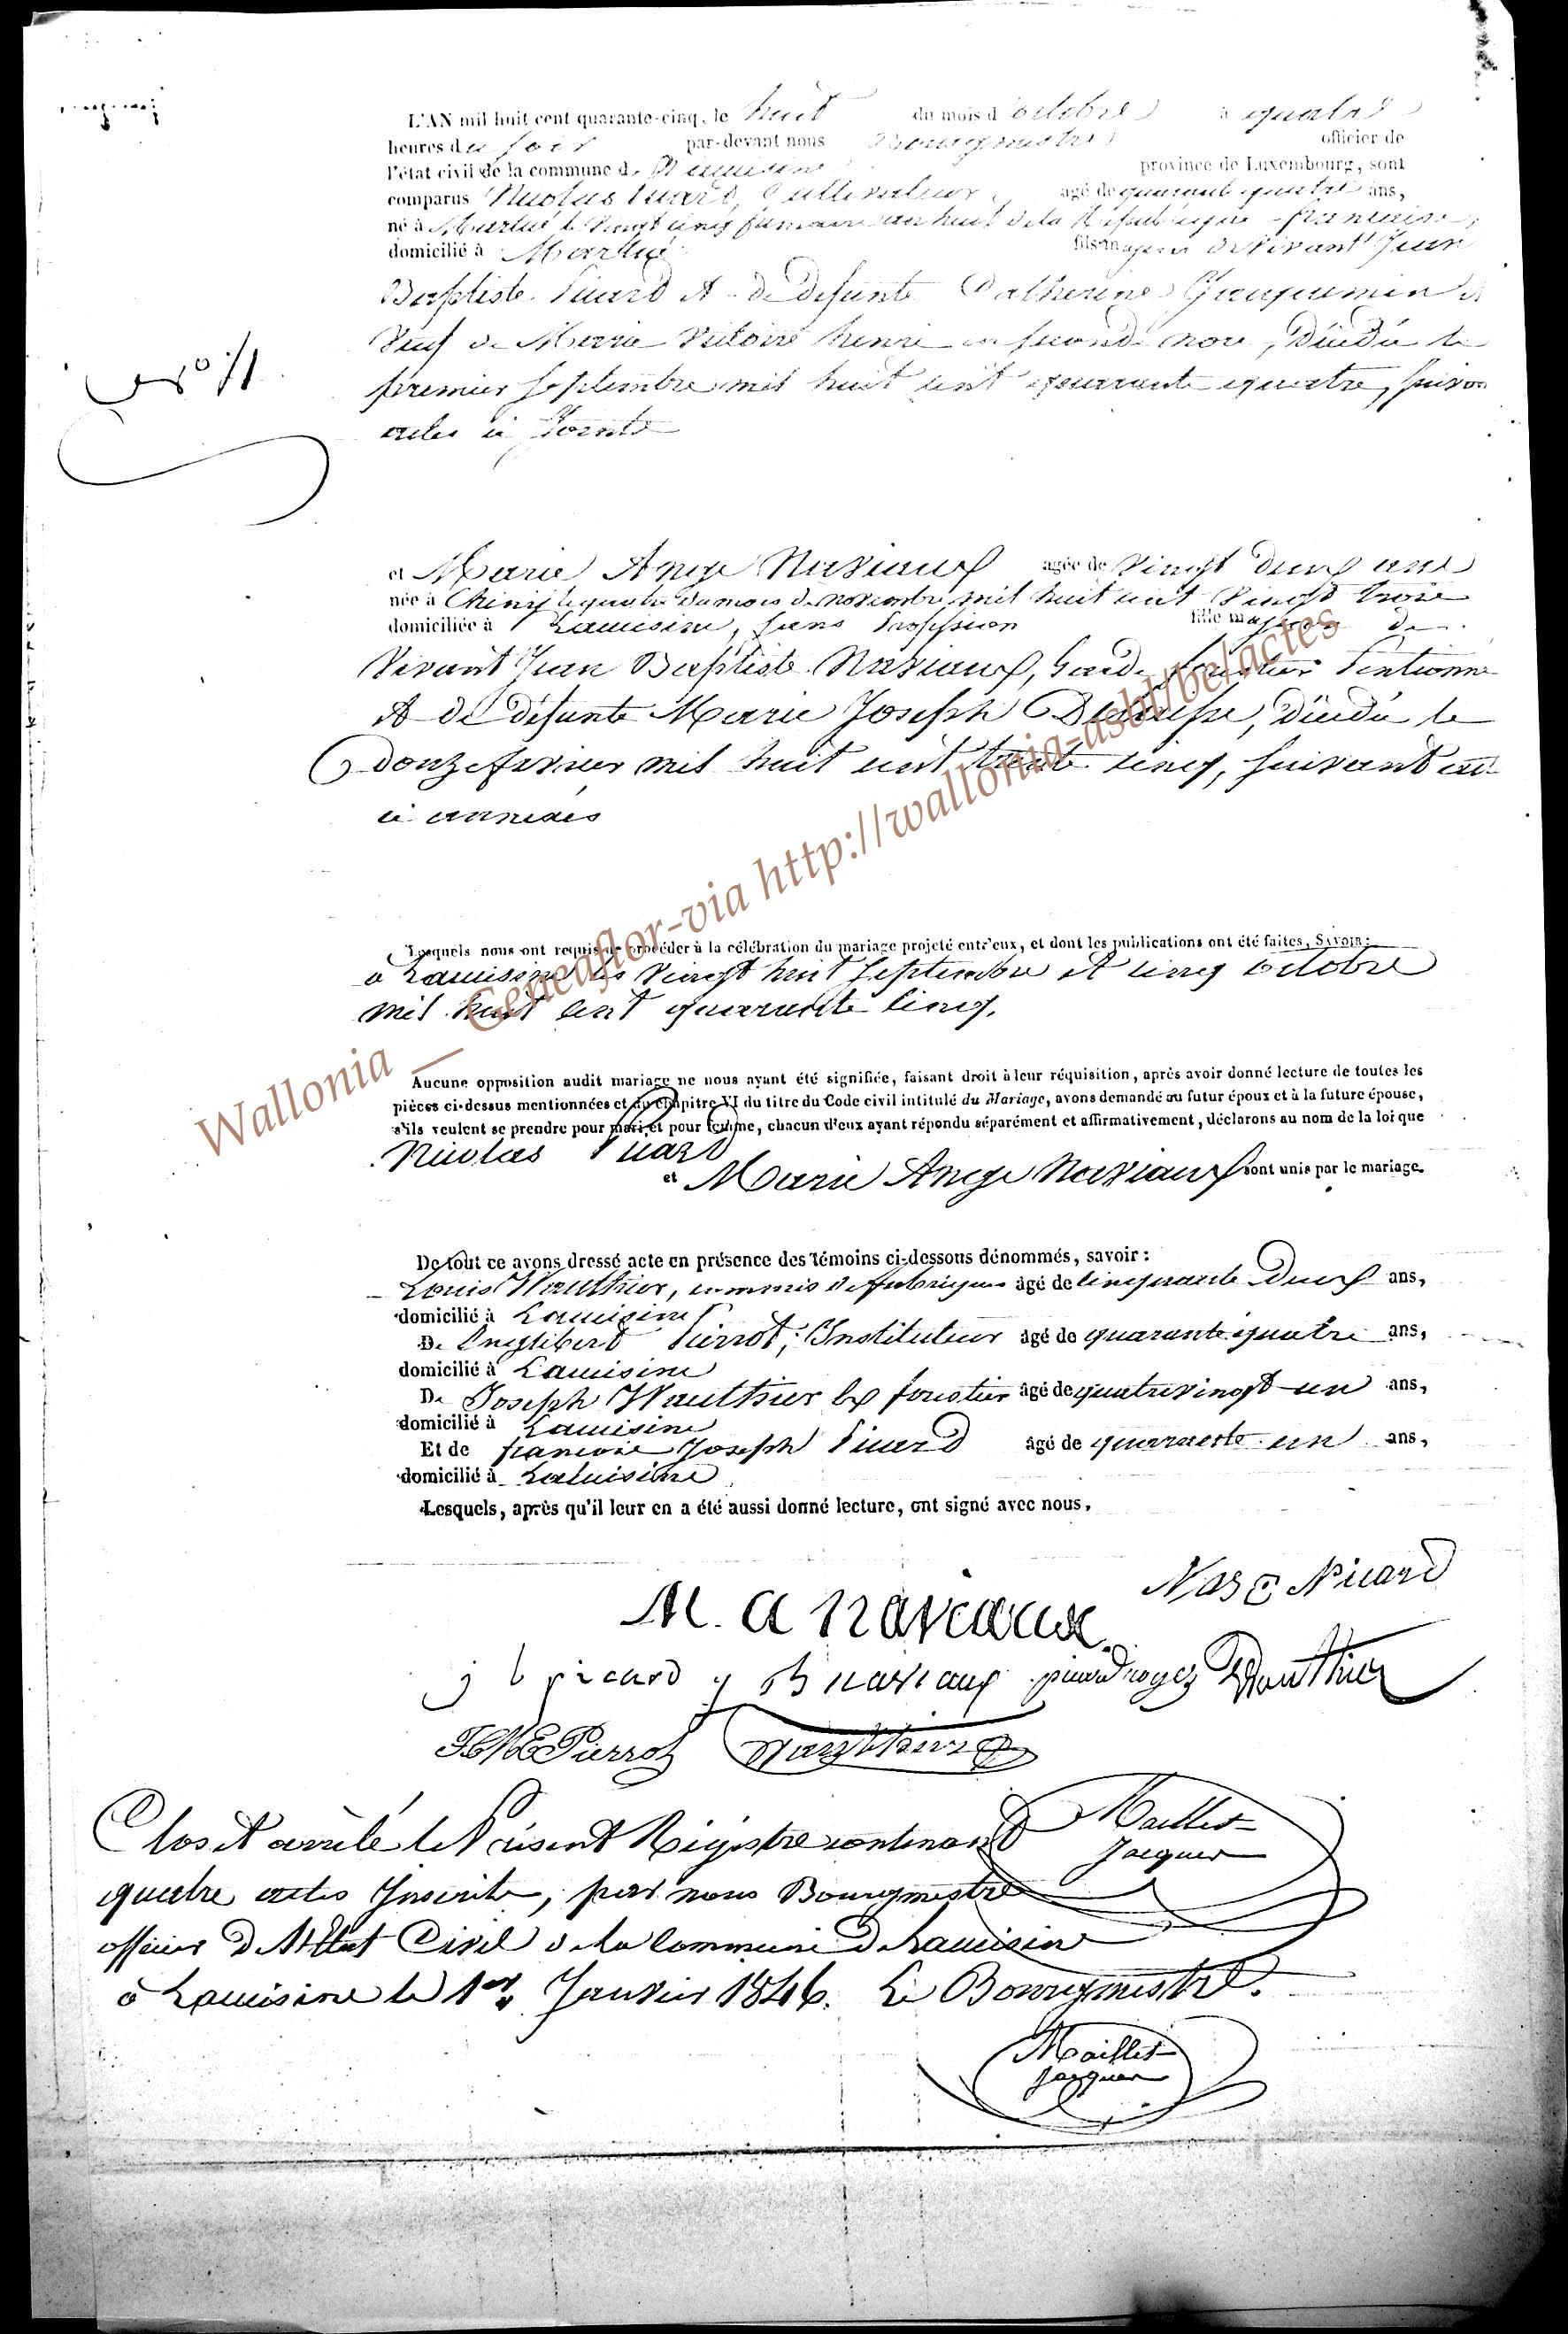 L'AN mil huit cent quarante-cinq, le huit du mois d'octobre à quatre
heures du soir par-devant nous Bourgmestre officier de
l'état civil de la commune de Lacuisine province de Luxembourg, sont
comparus Nicolas Picard, Cultivateur, agé de quarante quatre ans,
né à Martué le vingt cinq frimaire an huit de la République française,
domicilié à Martué fils majeur de vivant Jean
Baptiste Picard et de défunte Catherine Jacquemin et
veuf de Marie Victoire henri en seconde noce, décédée le
premier septembre mil huit cent quarante quatre, suivant
actes ci Joints
N° 4
et Marie Ange Naviaux agée de vingt deux ans
née à Chiny le quatre du mois de novembre mil huit cent vingt trois
domiciliée à Lacuisine, sans Profession fille majeure de
vivant Jean Baptiste Naviaux, Garde forestier Pentionné
et de défunte Marie Joseph décédée le
douze fevrier mil huit cent trente cinq, suivant actes
ci annexés
Lesquels nous ont requis de procéder à la célébration du mariage projeté entr'eux, et dont les publications ont été faites, SAVOIR:
à Lacuisine les vingt huit septembre et cinq octobre
mil huit cent quarante cinq.
Aucune opposition audit mariage ne nous ayant été signifiée, faisant droit à leur réquisition, après avoir donné lecture de toutes les
pièces ci-dessus mentionnées et du chapitre VI du titre du Code civil intitulé du Mariage, avons demandé au futur époux et à la future épouse,
s'ils veulent se prendre pour mari et pour femme, chacun d'eux ayant répondu séparément et affirmativement, déclarons au nom de la loi que
Nicolas Picard
et Marie Ange Naviaux sont unis par le mariage.
De tout ce avons dressé acte en présence des témoins ci-dessous dénommés, savoir:
Louis Wauthier, commis de fabrique âgé de cinquante deux ans,
domicilié à Lacuisine
De Englibert Pierrot, Instituteur âgé de quarante quatre ans,
domicilié à Lacuisine
De Joseph Wauthier Ex forestier âgé de quatrevingt un ans,
domicilié à Lacuisine
Et de francois Joseph Picard âgé de quarante un ans,
domicilié à Lacuisine
Lesquels, après qu'il leur en a été aussi donné lecture, ont signé avec nous.
N Picard
M. a naviaux
j b picard j B naviaux Wauthier
Pierrot Wauthier
Clos et arrêté le Présent Régistre contenant Maillet
Jacques
quatre actes Inscrits, par nous Bourgmestre
officier de l'Etat Civil de la Commune de Lacuisine
à Lacuisine le 1er Janvier 1846. Le Bourgmestre.
Maillet
Jacques
Wallonia _ Geneaflor-via http://wallonia-asbl/be/actes